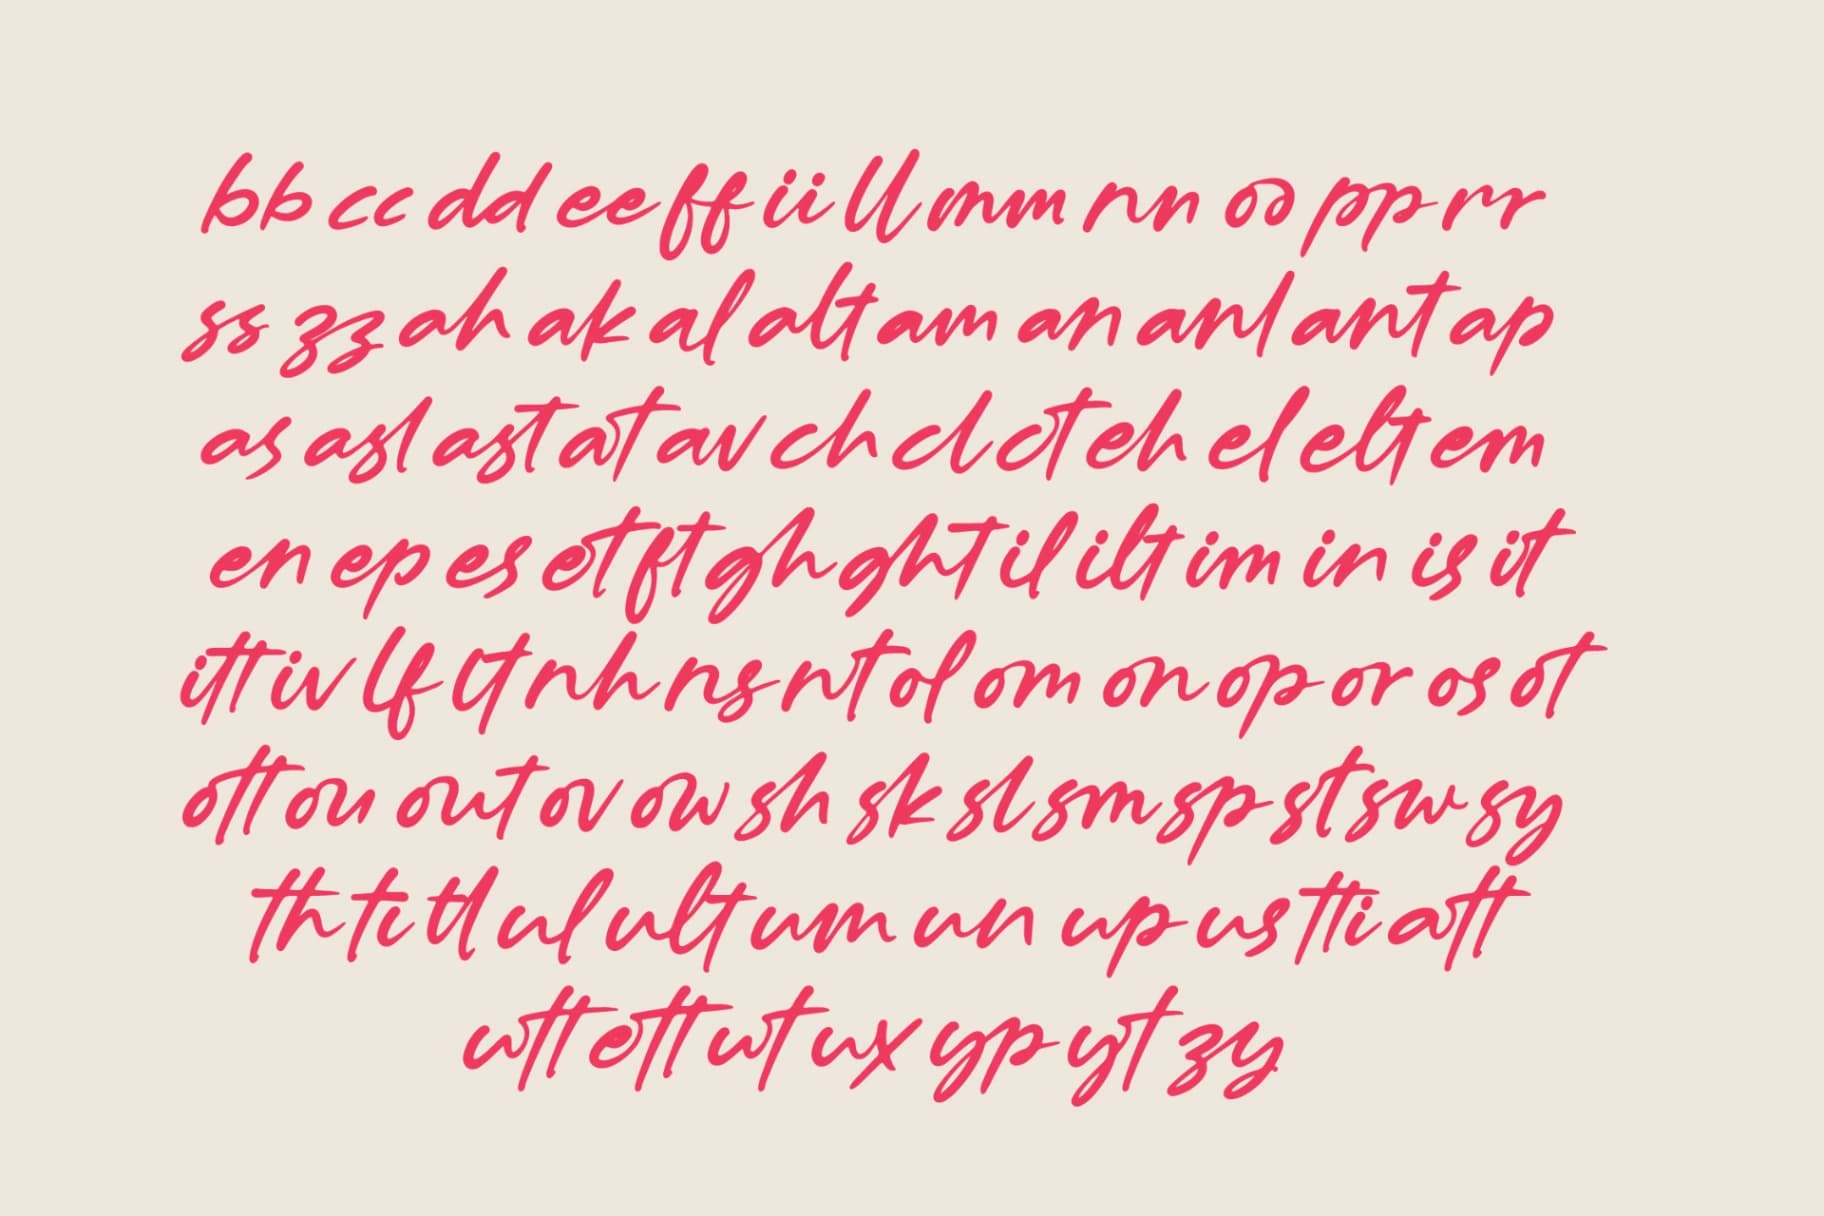 bb cc dd ee ff ii ll mm nn oo pp rr
ss zz ah ak al alt am an anl ant ap
as asl ast at av ch cl ct eh el elt em
en ep es et ft gh ght il ilt im in is it
itt iv lf lt nh ns nt ol om on op or os ot
ott ou out ov ow sh sk sl sm sp st sw sy
th ti tl ul ult um un up us tti att
utt ett ut ux yp yt zy